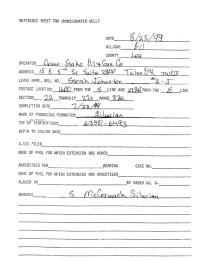 REFERENCE SHEET FOR UNDESIGNATED WELLS
DATE 8/25/99
OIL/GAS Oil
COUNTY Lea
OPERATOR Gas Co
ADDRESS 15 E 5th St Suite 2800 Tulsa OK
LEASE NAME, WELL NO. Sarah Johnston
FOOTAGE LOCATION FROM THE S LINE AND FROM THE E LINE
SECTION 22 TOWNSHIP 22S RANGE 37E
COMPLETION DATE 7/23/99
NAME OF PRODUCING FORMATION Silurian
TOP OF PERFORATIONS 6390-6493
DEPTH TO CASING SHOE
C-123 FILED
NAME OF POOL FOR WHICH EXTENSION WAS ASKED
ADVERTISED FOR HEARING CASE NO.
NAME OF POOL FOR WHICH EXTENSION WAS ADVERTISED
PLACED IN BY ORDER NO. R-
REMARKS S McCormack Silurian